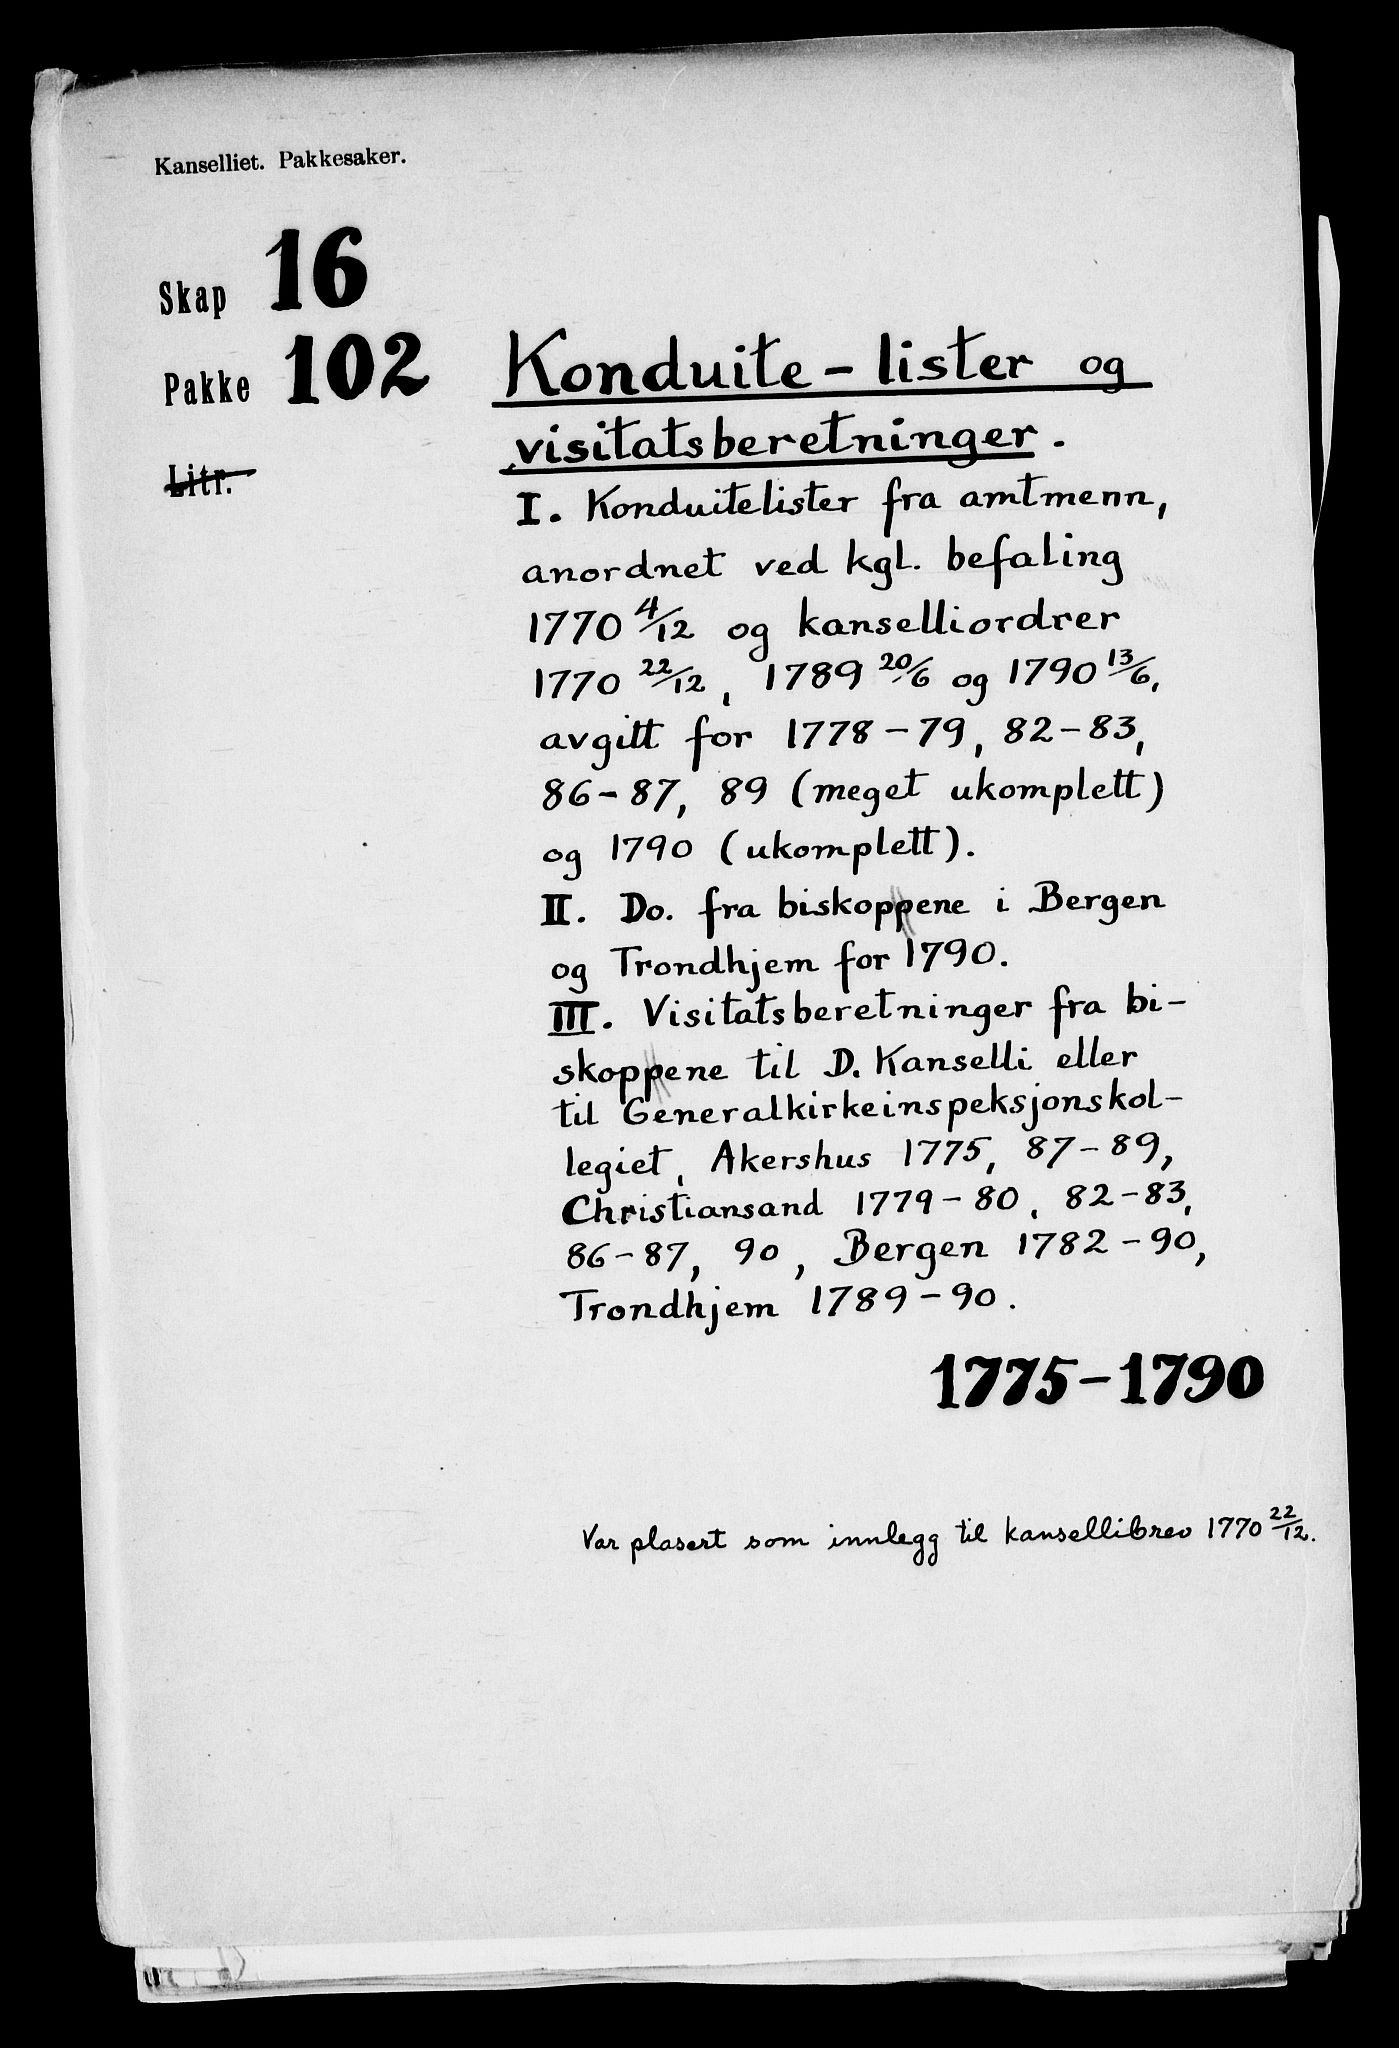 Kanselliet. Pakkesaker.
Skap 16
Pakke 102
Litr.
Konduite - lister og
visitatsberetninger.
I. Konduitelister fra amtmenn,
anordnet ved kgl. befaling
1770 4/12 og kanselliordrer
1770 22/12, 1789 20/6 og 1790 13/6,
avgitt for 1778-79, 82-83,
86-87, 89 (meget ukomplett)
og 1790 (ukomplett).
II. Do. fra biskoppene i Bergen
og Trondhjem for 1790.
III. Visitatsberetninger fra bi-
skoppene til D. Kanselli eller
til Generalkirkeinspeksjonskol-
legiet, Akershus 1775, 87-89,
Christiansand 1779-80, 82-83,
86-87, 90, Bergen 1782-90,
Trondhjem 1789-90.
1775-1790
Var plasert som innlegg til kansellibrev 1770 22/12.